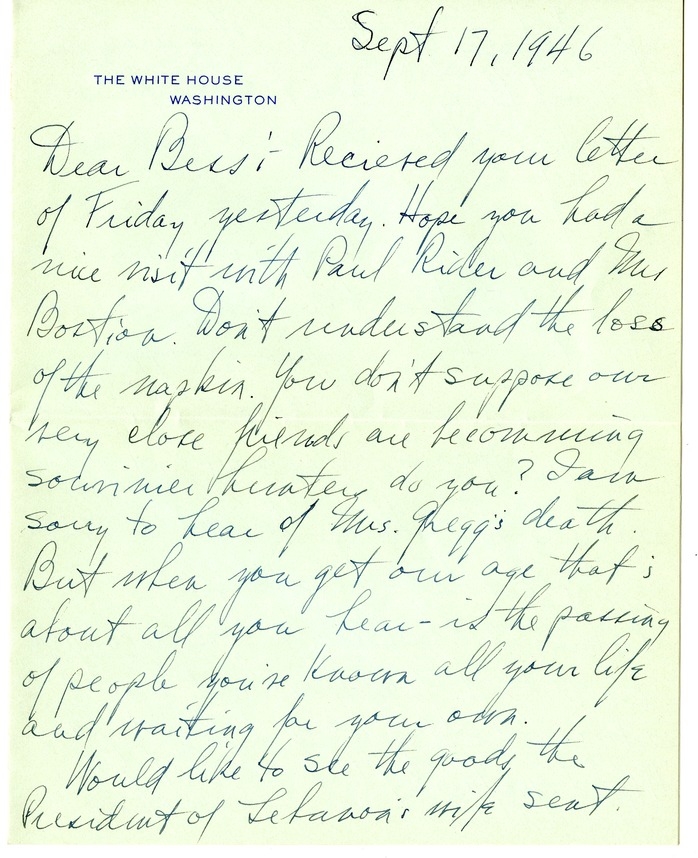 Sept 17, 1946
THE WHITE HOUSE
WASHINGTON
Dear Bess:- Recieved your letter
of Friday yesterday. Hope you had a
nice visit with Paul Rider and Mrs
Bostian. Don't understand the loss
of the napkin. You don't suppose our
very close friends are becomming
souvinier hunters do you? I am
sorry to hear of Mrs. Gregg's death.
But when you get our age that's
about all you hear - is the passing
of people you've known all your life
and waiting for your own.
Would like to see the goods the
President of Lebanon's wife sent.